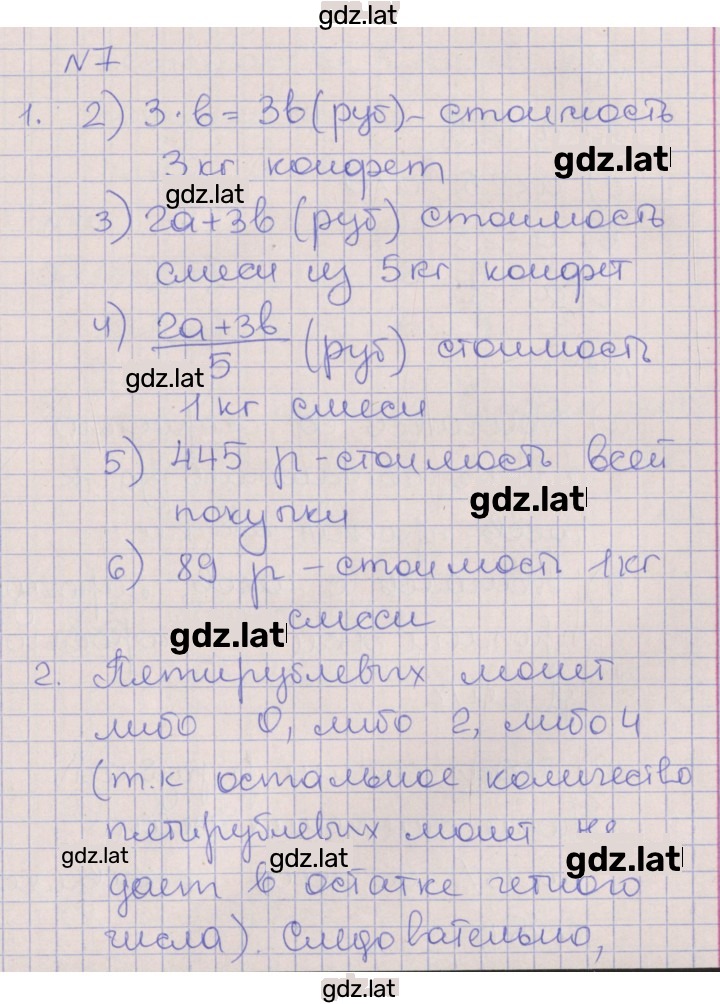 gdz.lat
№7
1. 2) 3·в = 3в (руб) - стоимость
3кг конфет
gdz.lat
gdz.lat
3) 2а+3в (руб) стоимость
смеси из 5кг конфет
4) 2а+3в / 5 (руб) стоимость
gdz.lat
1 кг смеси
5) 445 р - стоимость всей
gdz.lat
покупки
6) 89 р - стоимость 1кг
смеси
gdz.lat
2. Пятирублевых монет
либо 0, либо 2, либо 4
(т.к остальное количество
пятирублевых монет не
gdz.lat
gdz.lat
gdz.lat
дает в остатке четного
числа). Следовательно,
gdz.lat